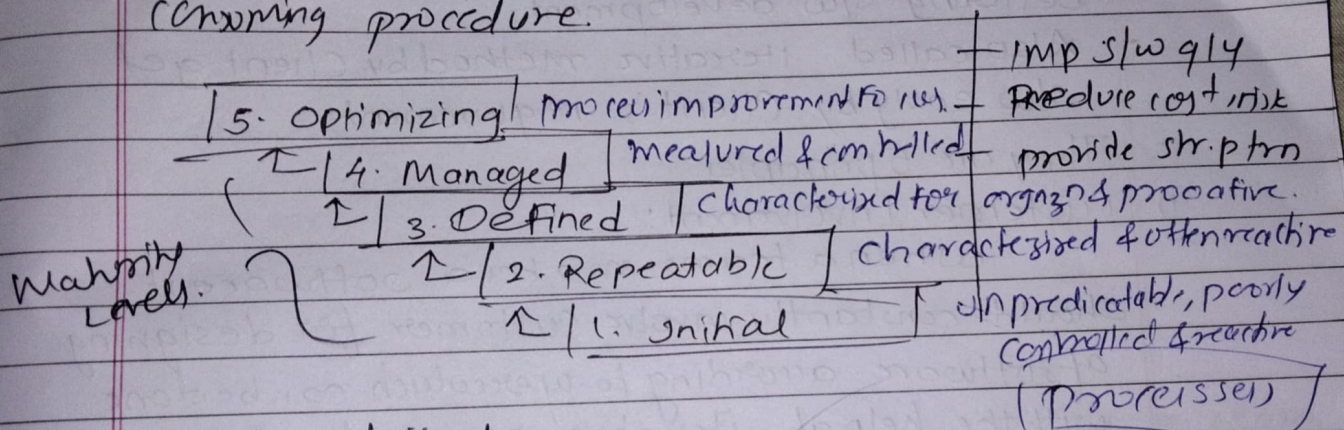 procedure.
Imp s/w qly
5. Optimizing process improvement focus. Reduce cost, risk
4. Managed measured & controlled provide str. ptrn
3. Defined Characterized for orgnzn & prooative.
2. Repeatable Characterized & often reactive
Maturity
Levels.
1. Initial unpredicatable, poorly
controlled & reactive
(Processes)